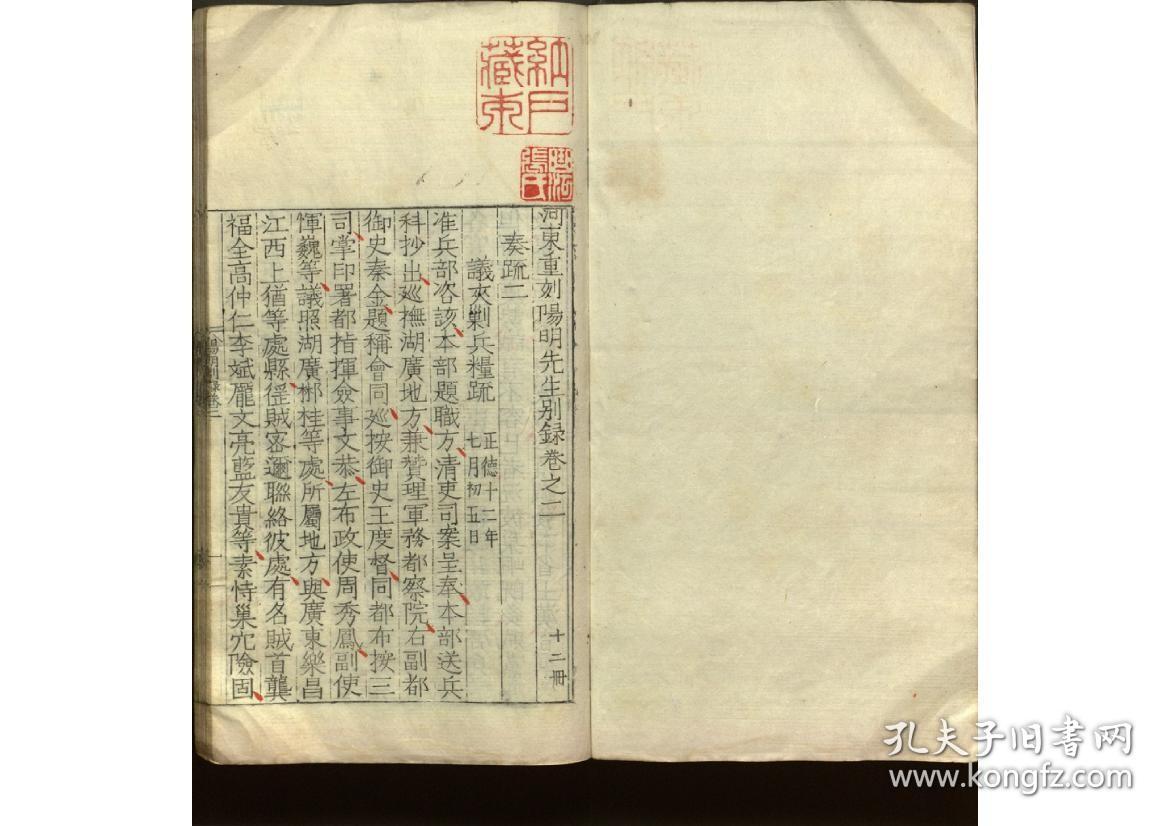 河東重刻陽明先生别録卷之二
十二冊
奏疏二
議夾剿兵糧疏
正德十二年
七月初五日
准兵部咨該本部題職方清吏司案呈奉本部送兵
科抄出廵撫湖廣地方兼贊理軍務都察院右副都
御史秦金題稱會同廵按御史王度督同都布按三
司掌印署都指揮僉事文恭左布政使周秀鳳副使
惲巍等議照湖廣郴桂等處所屬地方與廣東樂昌
江西上猶等處縣徭賊密邇聯絡彼處有名賊首龔
福全高仲仁李斌龎文亮藍友貴等素恃巢穴險固
張氏
孔夫子旧书网
www.kongfz.com